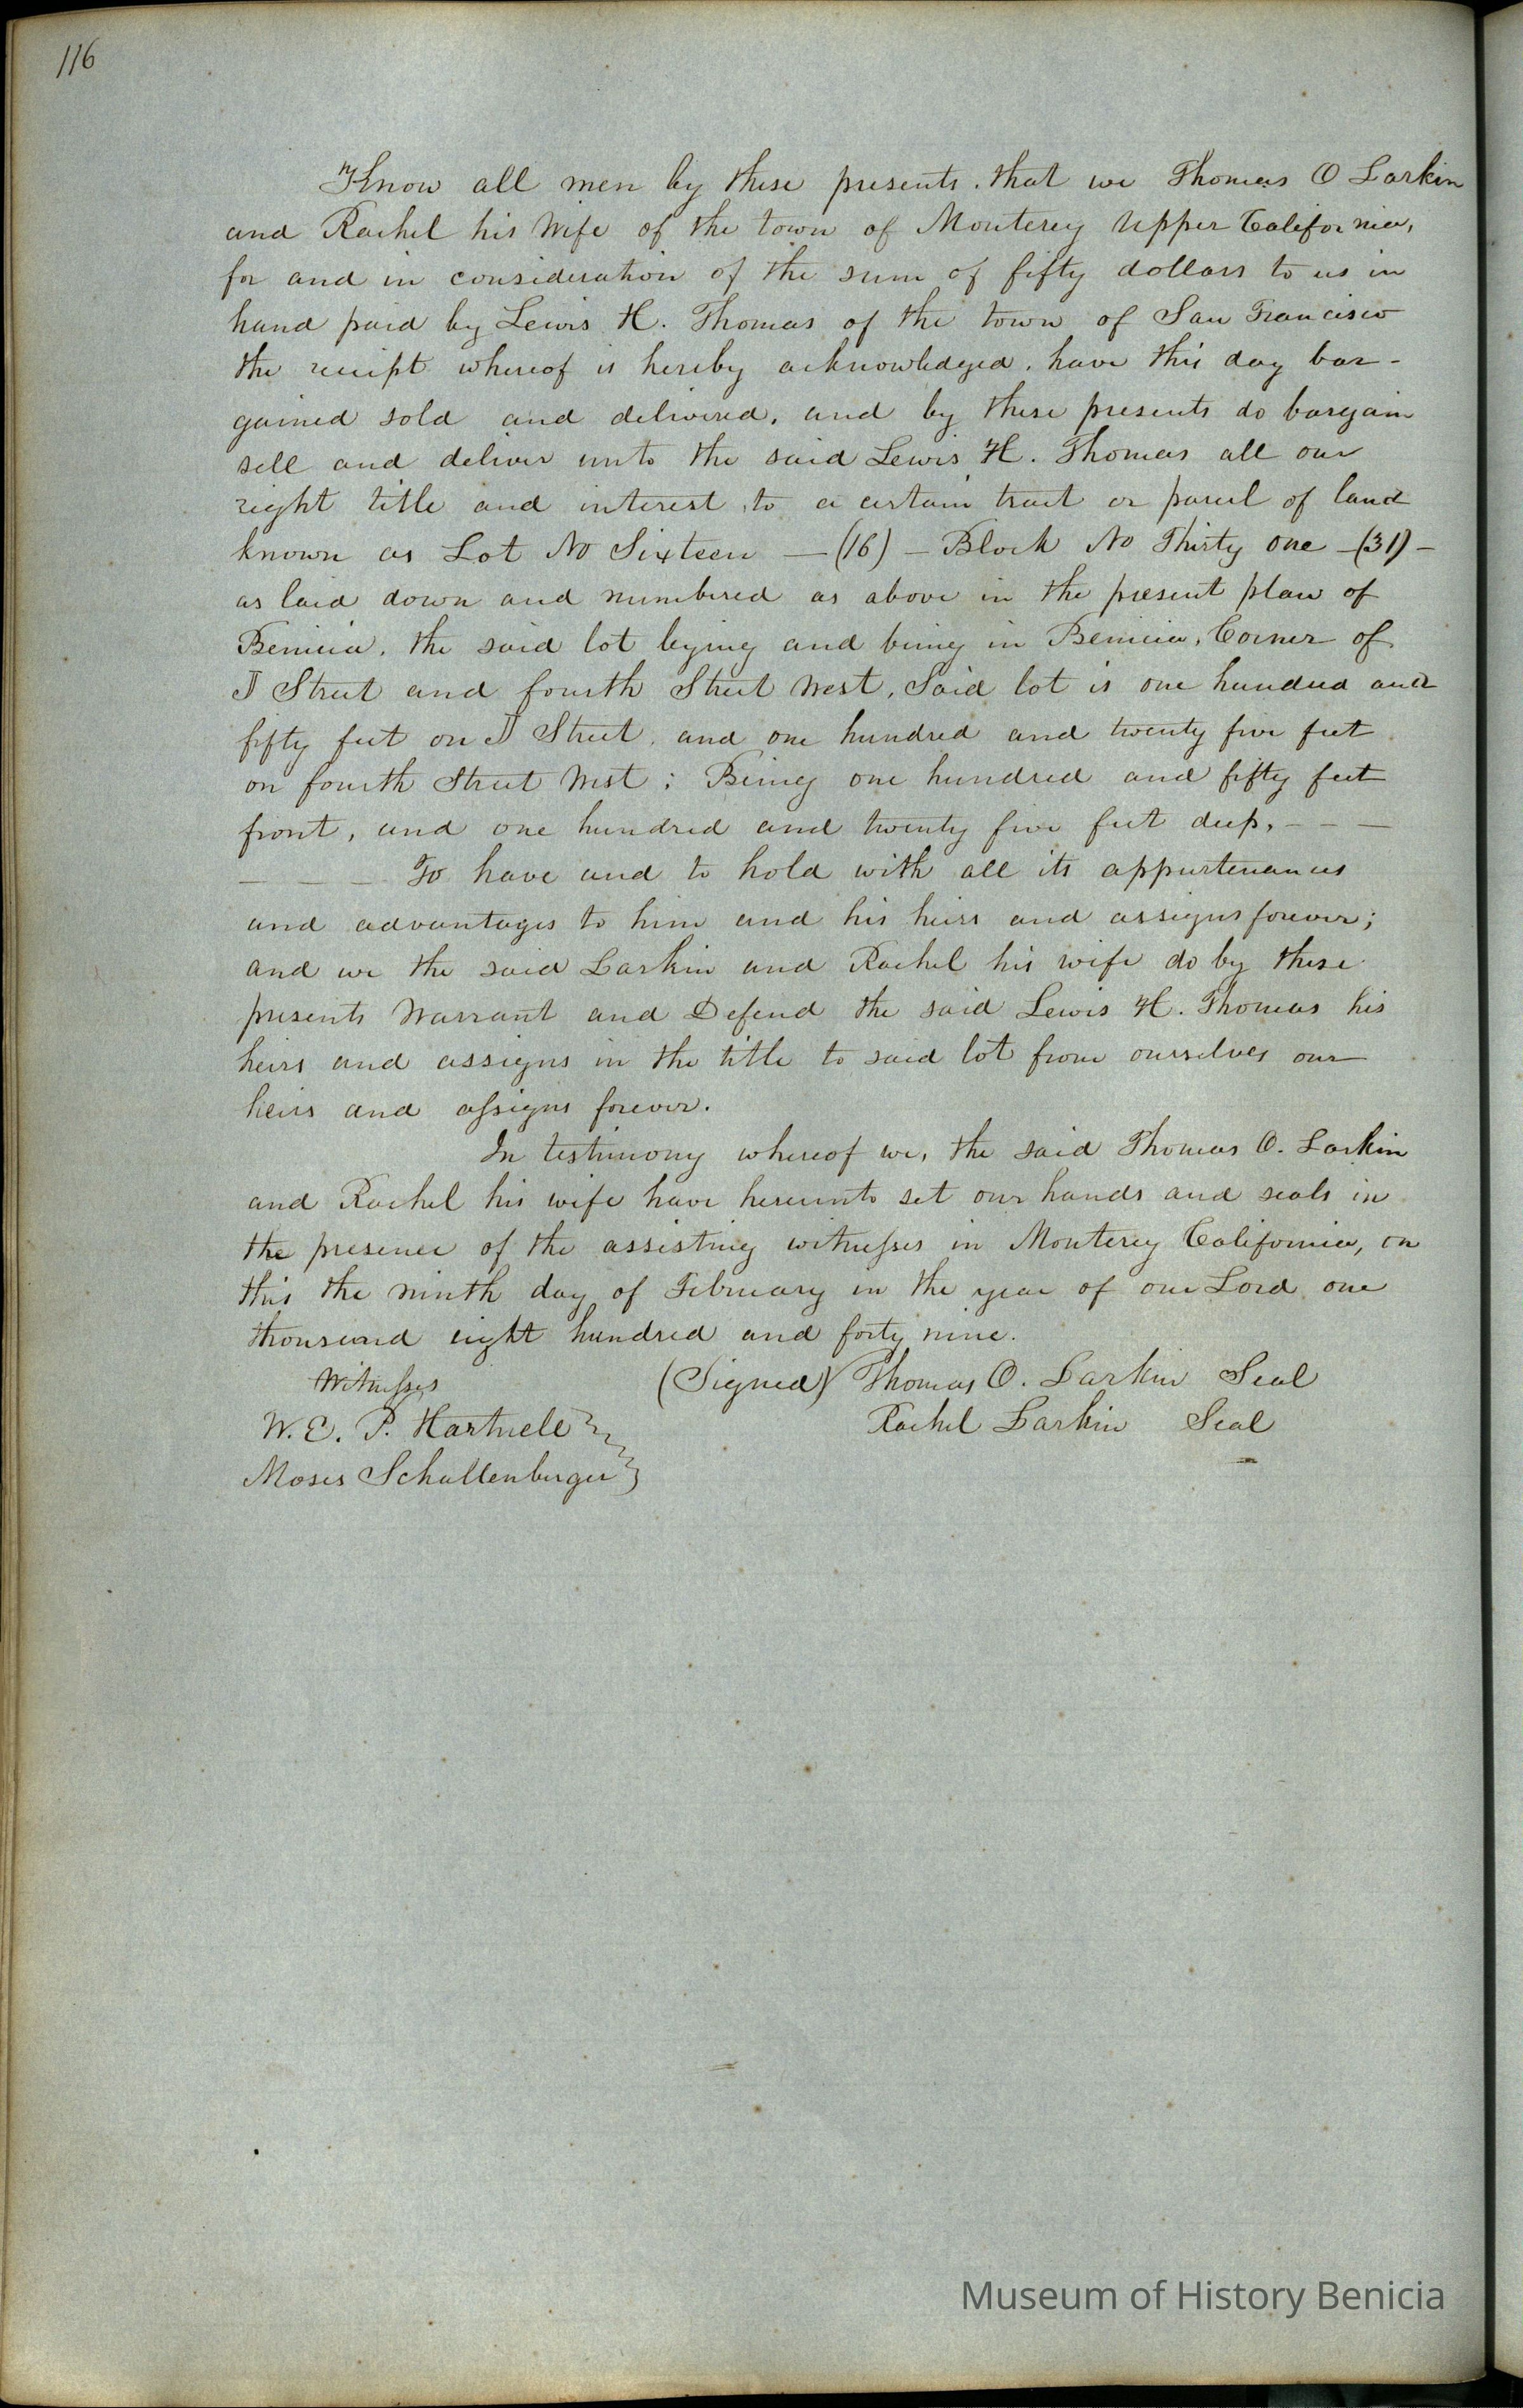 116
Know all men by these presents. that we Thomas O Larkin
and Rachel his Wife of the town of Monterey Upper California,
for and in consideration of the sum of fifty dollars to us in
hand paid by Lewis H. Thomas of the town of San Francisco
the receipt whereof is hereby acknowledged, have this day bar-
gained sold and delivered, and by these presents do bargain
sell and deliver unto the said Lewis H. Thomas all our
right title and interest, to a certain tract or parcel of land
known as Lot No Sixteen — (16) — Block No Thirty One — (31) —
as laid down and numbered as above in the present plan of
Benicia, the said lot lying and being in Benicia, Corner of
J Street and fourth Street West, Said lot is one hundred and
fifty feet on J Street, and one hundred and twenty five feet
on fourth Street West; Being one hundred and fifty feet
front, and one hundred and twenty five feet deep, — — —
— — — To have and to hold with all its appurtenances
and advantages to him and his heirs and assigns forever;
and we the said Larkin and Rachel his wife do by these
presents Warrant and Defend the said Lewis H. Thomas his
heirs and assigns in the title to said lot from ourselves our
heirs and assigns forever.
In testimony whereof we, the said Thomas O. Larkin
and Rachel his wife have hereunto set our hands and seals in
the presence of the assisting witnesses in Monterey California, on
this the ninth day of February in the year of our Lord one
thousand eight hundred and forty nine.
Witnesses (Signed) Thomas O. Larkin Seal
W. E. P. Hartnell Rachel Larkin Seal
Moses Schallenberger
Museum of History Benicia